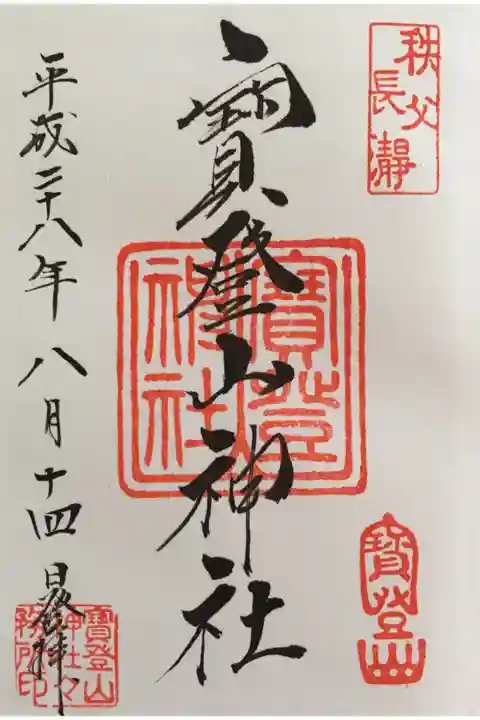 秩父
長瀞
寶登山神社
寶登
神社
寶登山
平成二十八年八月十四日登拝
寶登山
神社々
務所印